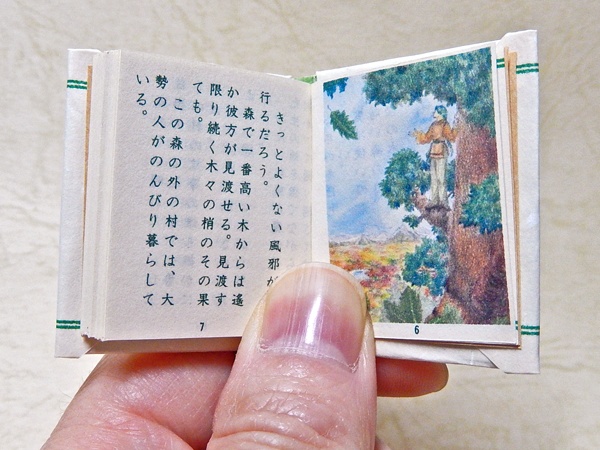 きっとよくない風邪が
行るだろう。
森で一番高い木からは遙
か彼方が見渡せる。見渡す
限り続く木々の梢のその果
ても。
この森の外の村では、大
勢の人がのんびり暮らして
いる。
7
6